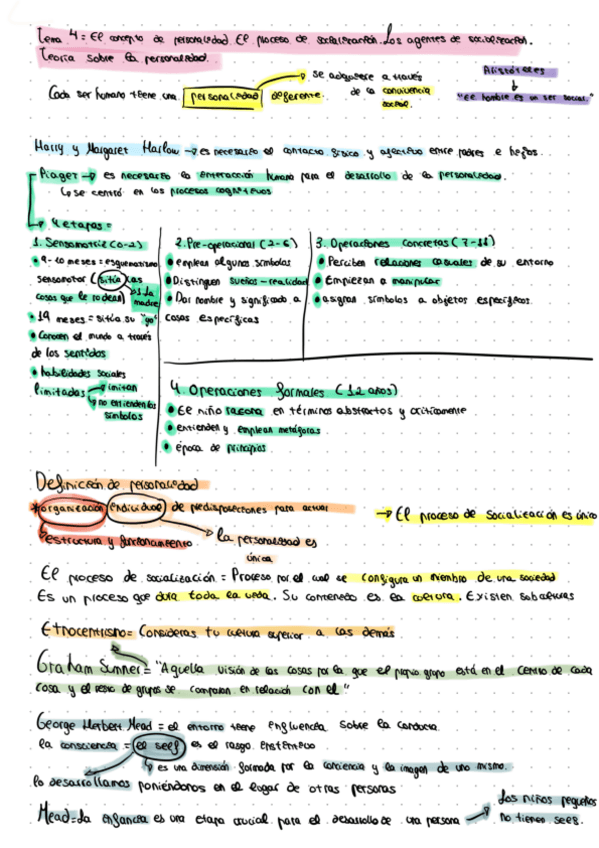 Tema 4 = El concepto de personalidad. El proceso de socialización. Los agentes de socialización.
Teoría sobre la personalidad.
Cada ser humano tiene una personalidad diferente.
→ se adquiere a través de la convivencia social.
Aristóteles
↓
"El hombre es un ser social."
Harry y Margaret Harlow → es necesario el contacto físico y afectivo entre padres e hijos.
Piaget → es necesario la interacción humana para el desarrollo de la personalidad.
↳ se centró en los procesos cognitivos
→ 4 etapas:
1. Sensomotriz (0-2)
• 9-10 meses = esquematismo
sensomotor (sitúa las
cosas que le rodean)
→ a la
madre
• 19 meses = sitúa su "yo"
• Conocen el mundo a través
de los sentidos
• habilidades sociales
limitadas → imitan
↳ no entienden los
símbolos
2. Pre-operacional (2-6)
• emplean algunos símbolos
• Distinguen sueños-realidad
• Dar nombre y significado a
cosas específicas
3. Operaciones concretas (7-11)
• Perciben relaciones causales de su entorno
• Empiezan a manipular
• asignan símbolos a objetos específicos.
4. Operaciones formales (12 años)
• El niño razona en términos abstractos y críticamente
• entienden y emplean metáforas
• época de principios
Definición de personalidad
*organización individual de predisposiciones para actuar
→ El proceso de socialización es único
estructura y funcionamiento
→ la personalidad es
única
El proceso de socialización = Proceso por el cual se configura un miembro de una sociedad
Es un proceso que dura toda la vida. Su contenido es la cultura. Existen subculturas
Etnocentrismo = Consideras tu cultura superior a las demás
Graham Sumner = "Aquella visión de las cosas por la que el propio grupo está en el centro de cada
cosa y el resto de grupos se comparan en relación con el"
George Herbert Mead = el entorno tiene influencia sobre la conducta
la consciencia = el self es el rasgo distintivo
↳ es una dimensión formada por la conciencia y la imagen de uno mismo.
lo desarrollamos poniéndonos en el lugar de otras personas
Mead = La infancia es una etapa crucial para el desarrollo de una persona → Los niños pequeños
no tienen self.